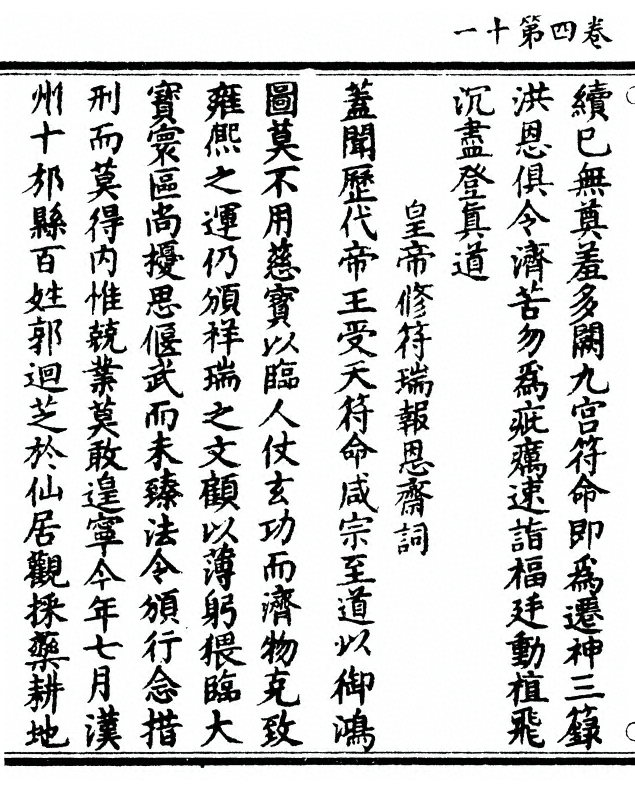 卷四第十一
續已無奠羞多闕九宮符命即爲遷神三籙
洪恩俱令濟苦勿爲疵癘速詣福廷動植飛
沉盡登眞道
皇帝修符瑞報恩齋詞
蓋聞歷代帝王受天符命咸宗至道以御鴻
圖莫不用慈寶以臨人仗玄功而濟物克致
雍熙之運仍頒祥瑞之文顧以薄躬猥臨大
寶寰區尚擾思偃武而未臻法令頒行念措
刑而莫得內惟兢業莫敢遑寧今年七月漢
州十邡縣百姓郭迴芝於仙居觀採藥耕地